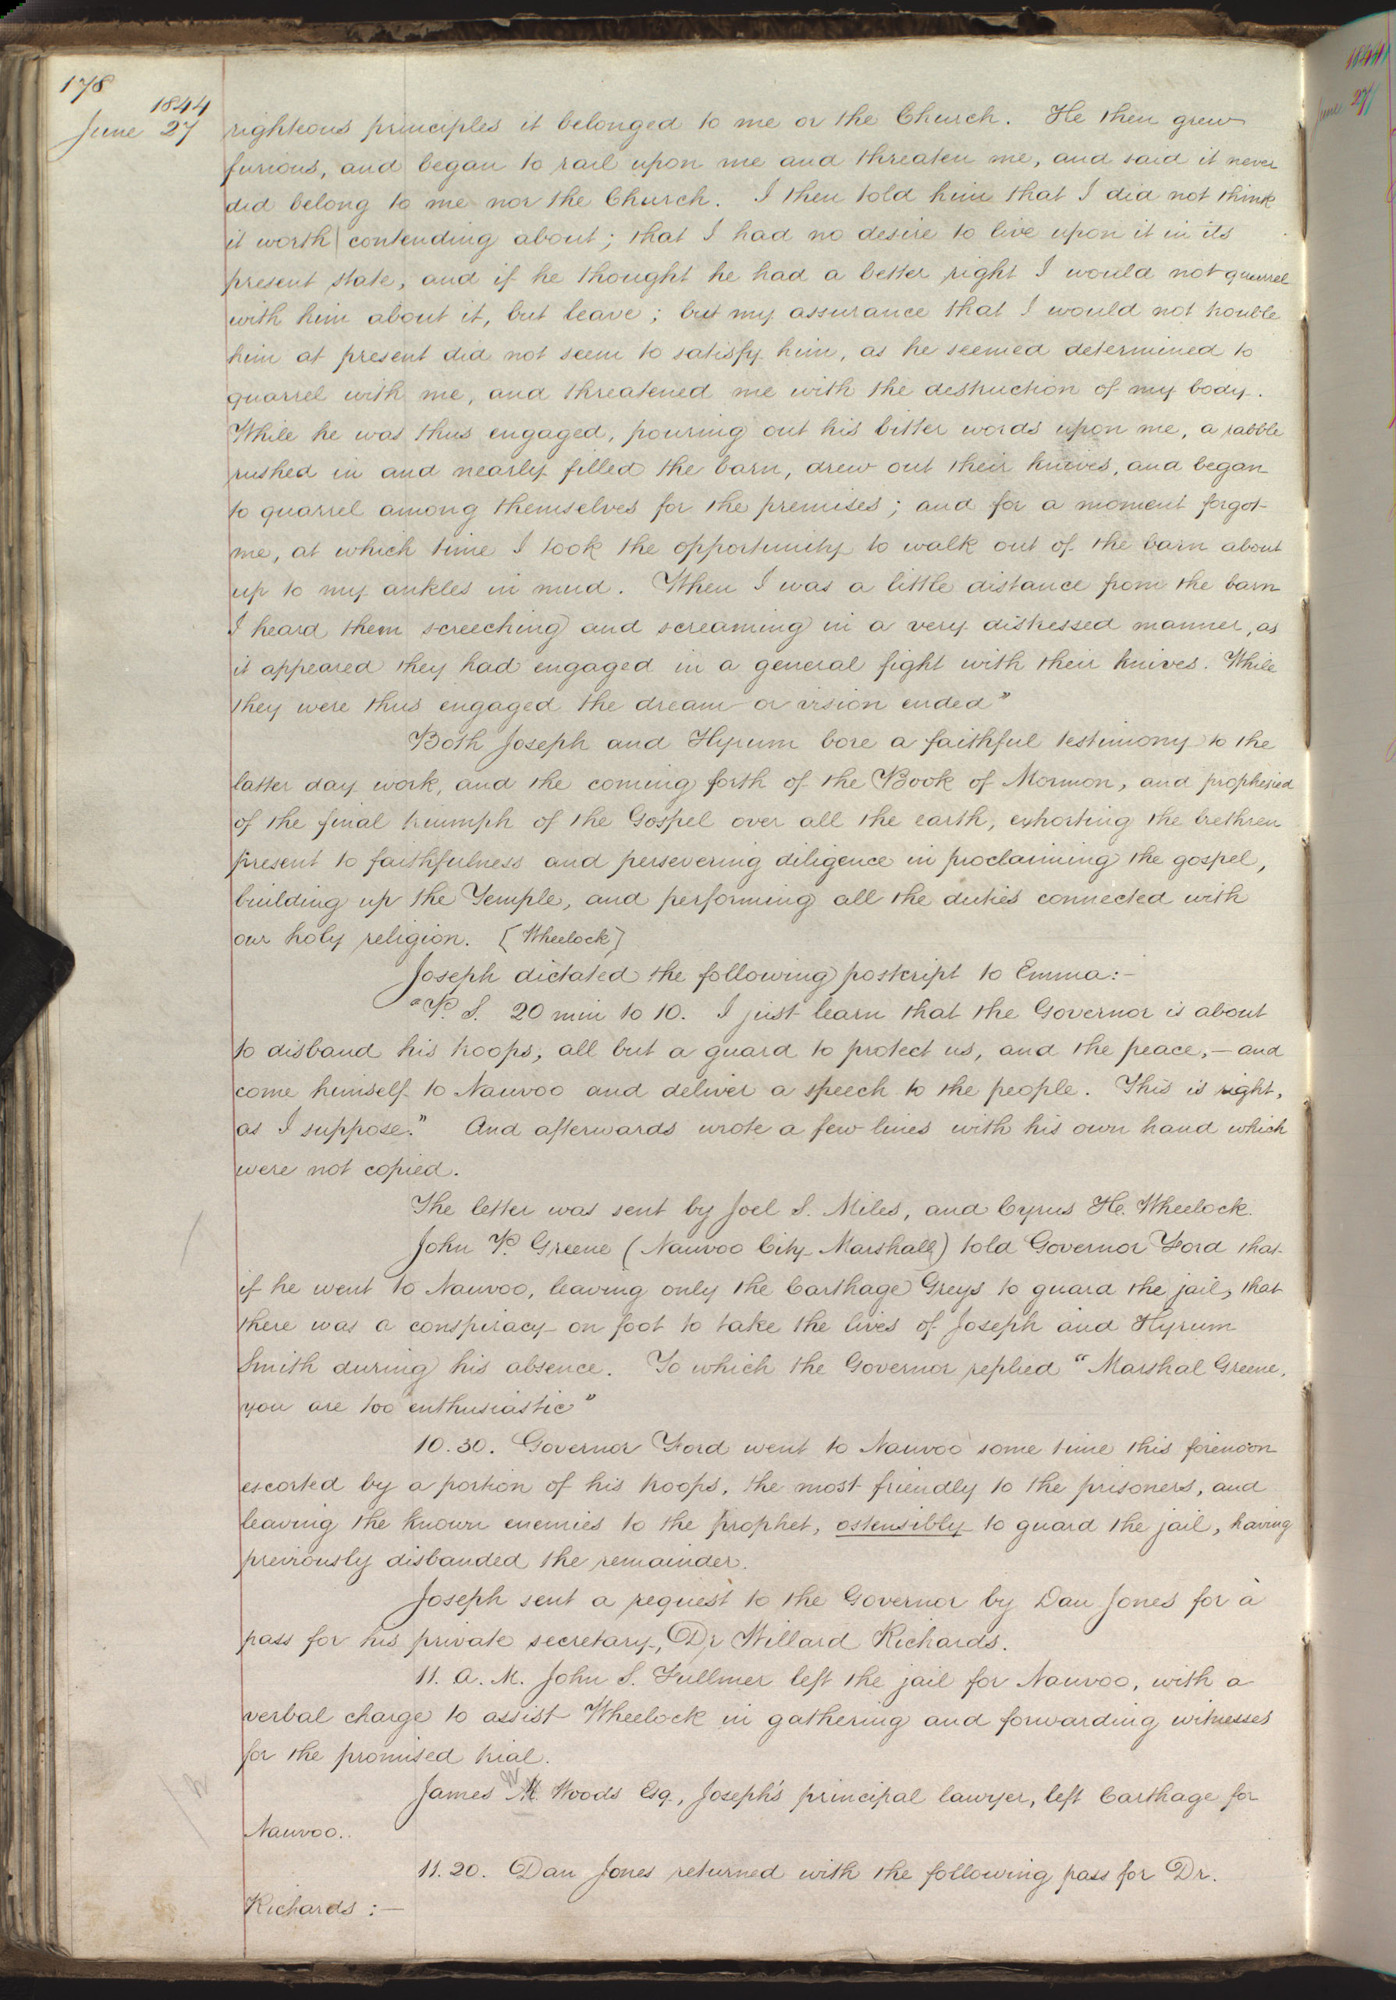 178
1844
June 27
righteous principles it belonged to me or the Church. He then grew
furious, and began to rail upon me and threaten me, and said it never
did belong to me nor the Church. I then told him that I did not think
it worth contending about; that I had no desire to live upon it in its
present state, and if he thought he had a better right I would not quarrel
with him about it, but leave; but my assurance that I would not trouble
him at present did not seem to satisfy him, as he seemed determined to
quarrel with me, and threatened me with the destruction of my body.
While he was thus engaged, pouring out his bitter words upon me, a rabble
rushed in and nearly filled the barn, drew out their knives, and began
to quarrel among themselves for the premises; and for a moment forgot
me, at which time I took the opportunity to walk out of the barn about
up to my ankles in mud. When I was a little distance from the barn
I heard them screeching and screaming in a very distressed manner, as
it appeared they had engaged in a general fight with their knives. While
they were thus engaged the dream or vision ended"
Both Joseph and Hyrum bore a faithful testimony to the
latter day work, and the coming forth of the Book of Mormon, and prophesied
of the final triumph of the Gospel over all the earth, exhorting the brethren
present to faithfulness and persevering diligence in proclaiming the gospel,
building up the Temple, and performing all the duties connected with
our holy religion. [Wheelock]
Joseph dictated the following postcript to Emma:-
"P. S. 20 min to 10. I just learn that the Governor is about
to disband his troops, all but a guard to protect us, and the peace,— and
come himself to Nauvoo and deliver a speech to the people. This is right,
as I suppose." And afterwards wrote a few lines with his own hand which
were not copied.
The letter was sent by Joel S. Miles, and Cyrus H. Wheelock.
John P. Greene (Nauvoo City Marshall) told Governor Ford that
if he went to Nauvoo, leaving only the Carthage Greys to guard the jail, that
there was a conspiracy on foot to take the lives of Joseph and Hyrum
Smith during his absence. To which the Governor replied "Marshal Greene,
you are too enthusiastic"
10.30. Governor Ford went to Nauvoo some time this forenoon
escorted by a portion of his troops, the most friendly to the prisoners, and
leaving the known enemies to the prophet, ostensibly to guard the jail, having
previously disbanded the remainder.
Joseph sent a request to the Governor by Dan Jones for a
pass for his private secretary, Dr Willard Richards.
11. A. M. John S. Fullmer left the jail for Nauvoo, with a
verbal charge to assist Wheelock in gathering and forwarding witnesses
for the promised trial.
W
James M Woods Esq., Joseph's principal lawyer, left Carthage for
Nauvoo.
11.20. Dan Jones returned with the following pass for Dr.
Richards :—
1844
June 27